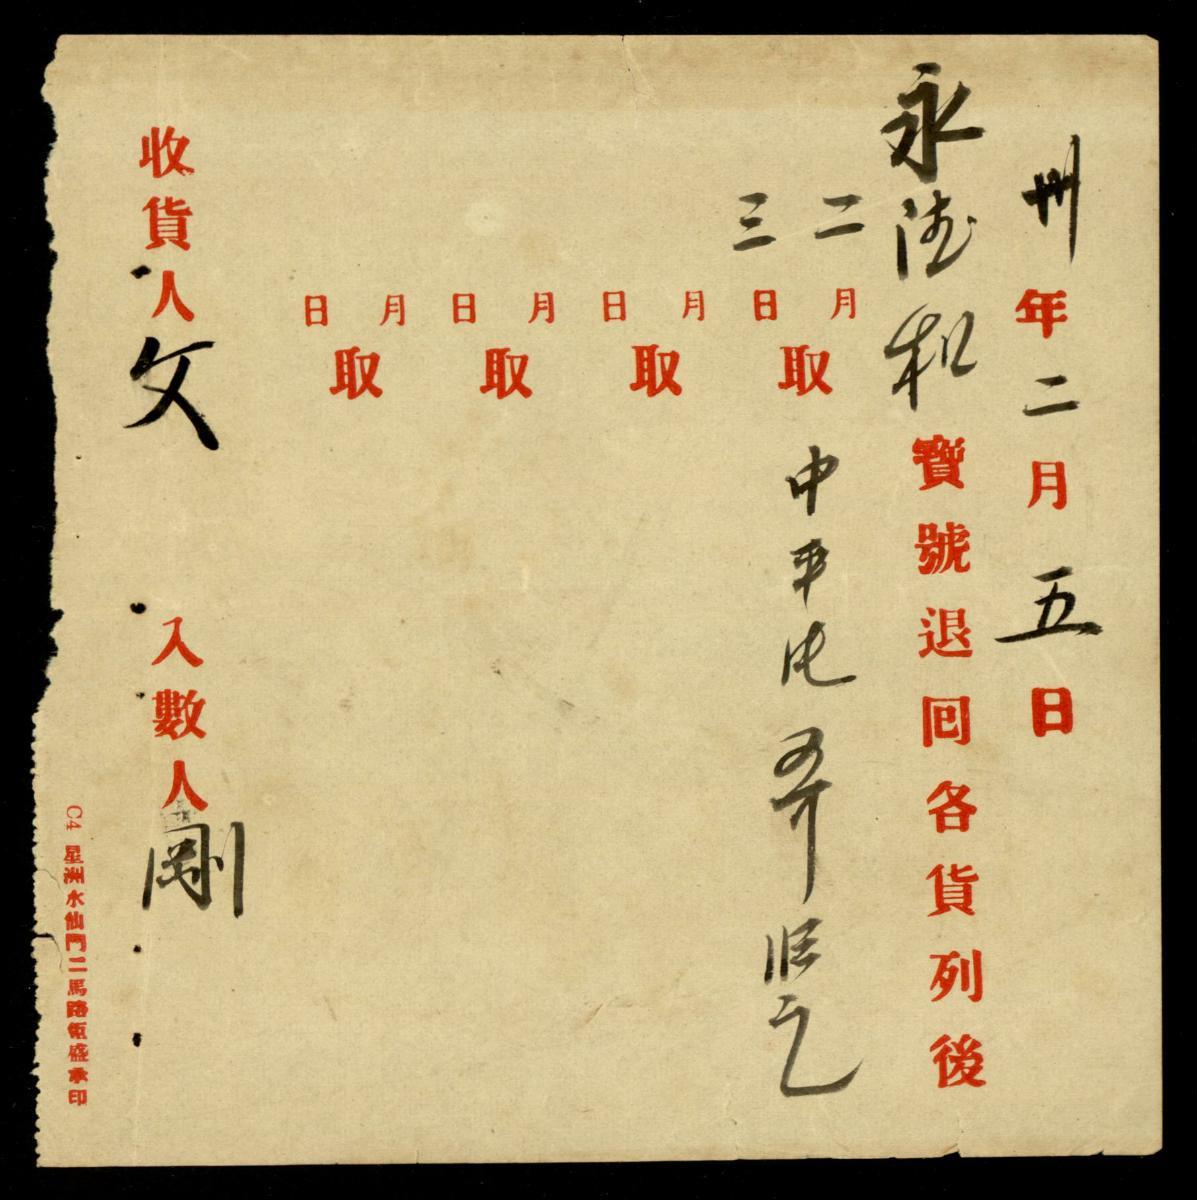 卅年二月五日
永德和寶號退囘各貨列後
二月三日取中平
月日取
月日取
月日取
收貨人文 入數人剛
C4 星洲水仙門二馬路鉅盛承印